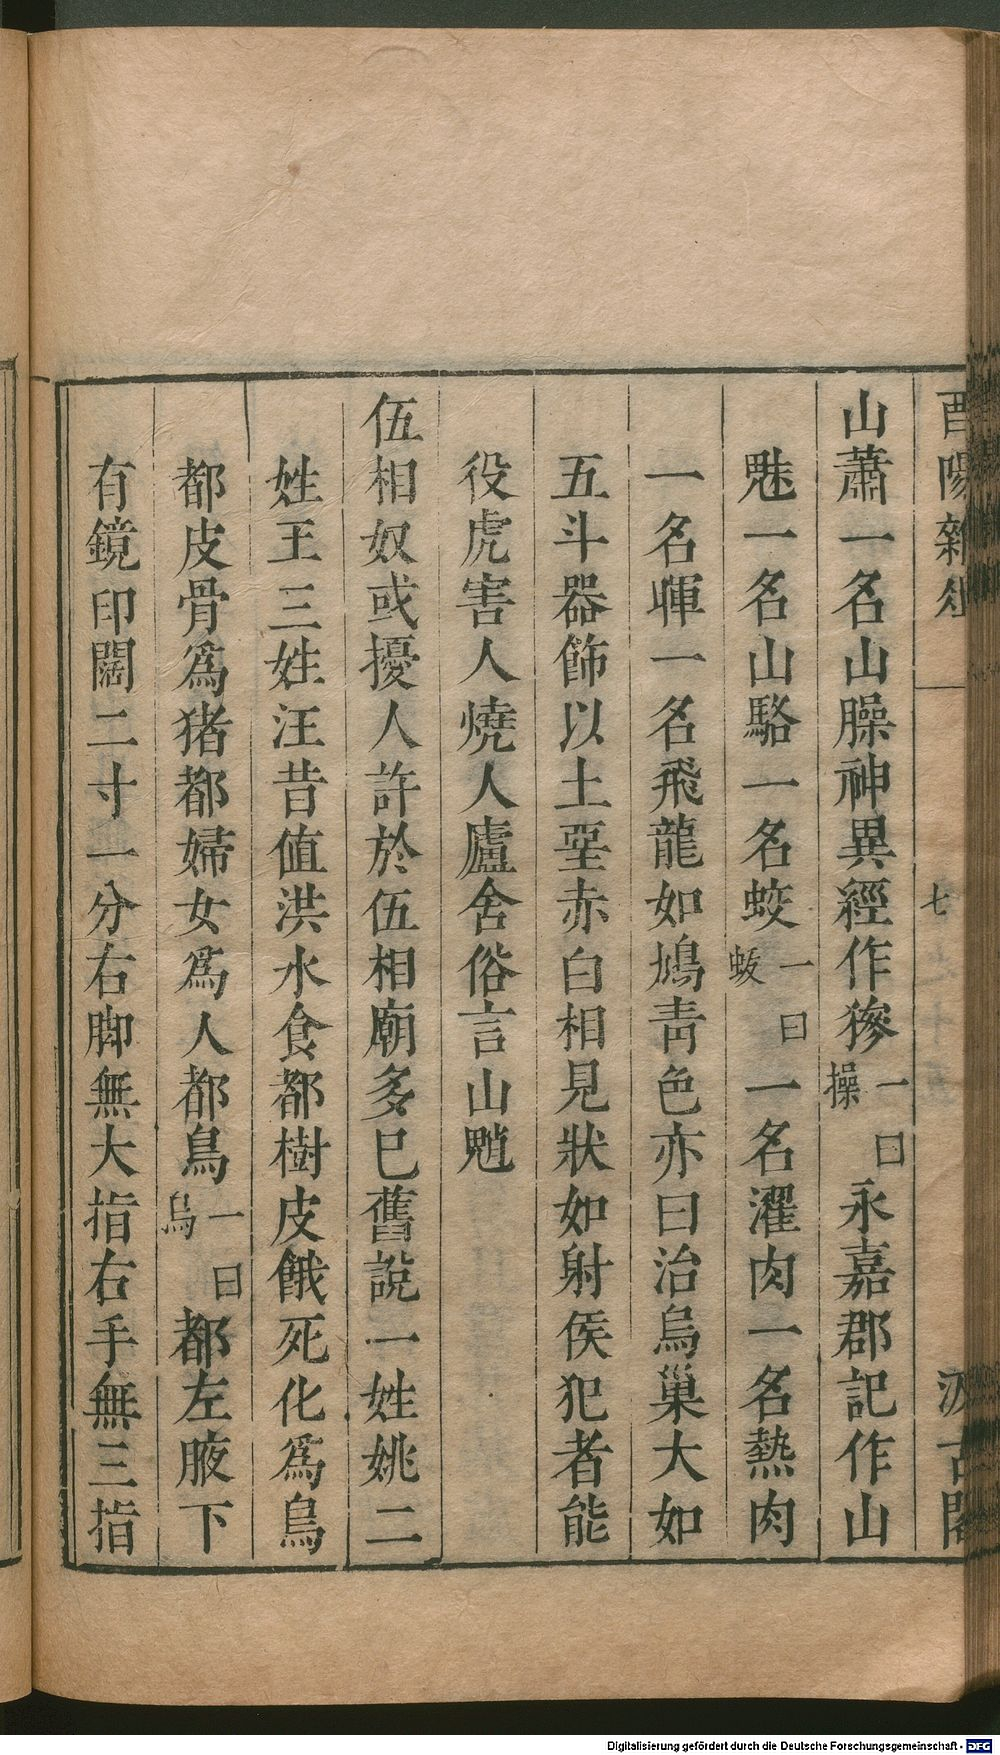 酉陽雜俎 七 汲古閣
山蕭一名山臊神異經作㺑一曰操永嘉郡記作山
魅一名山駱一名蛟一曰蛂一名濯肉一名熱肉
一名暉一名飛龍如鳩青色亦曰治鳥巢大如
五斗器飾以土堊赤白相見狀如射侯犯者能
役虎害人燒人廬舍俗言山魈
伍相奴或擾人許於伍相廟多已舊說一姓姚二
姓王三姓汪昔值洪水食都樹皮餓死化爲鳥
都皮骨爲猪都婦女爲人都鳥一曰烏都左腋下
有鏡印闊二寸一分右脚無大指右手無三指
Digitalisierung gefördert durch die Deutsche Forschungsgemeinschaft - DFG